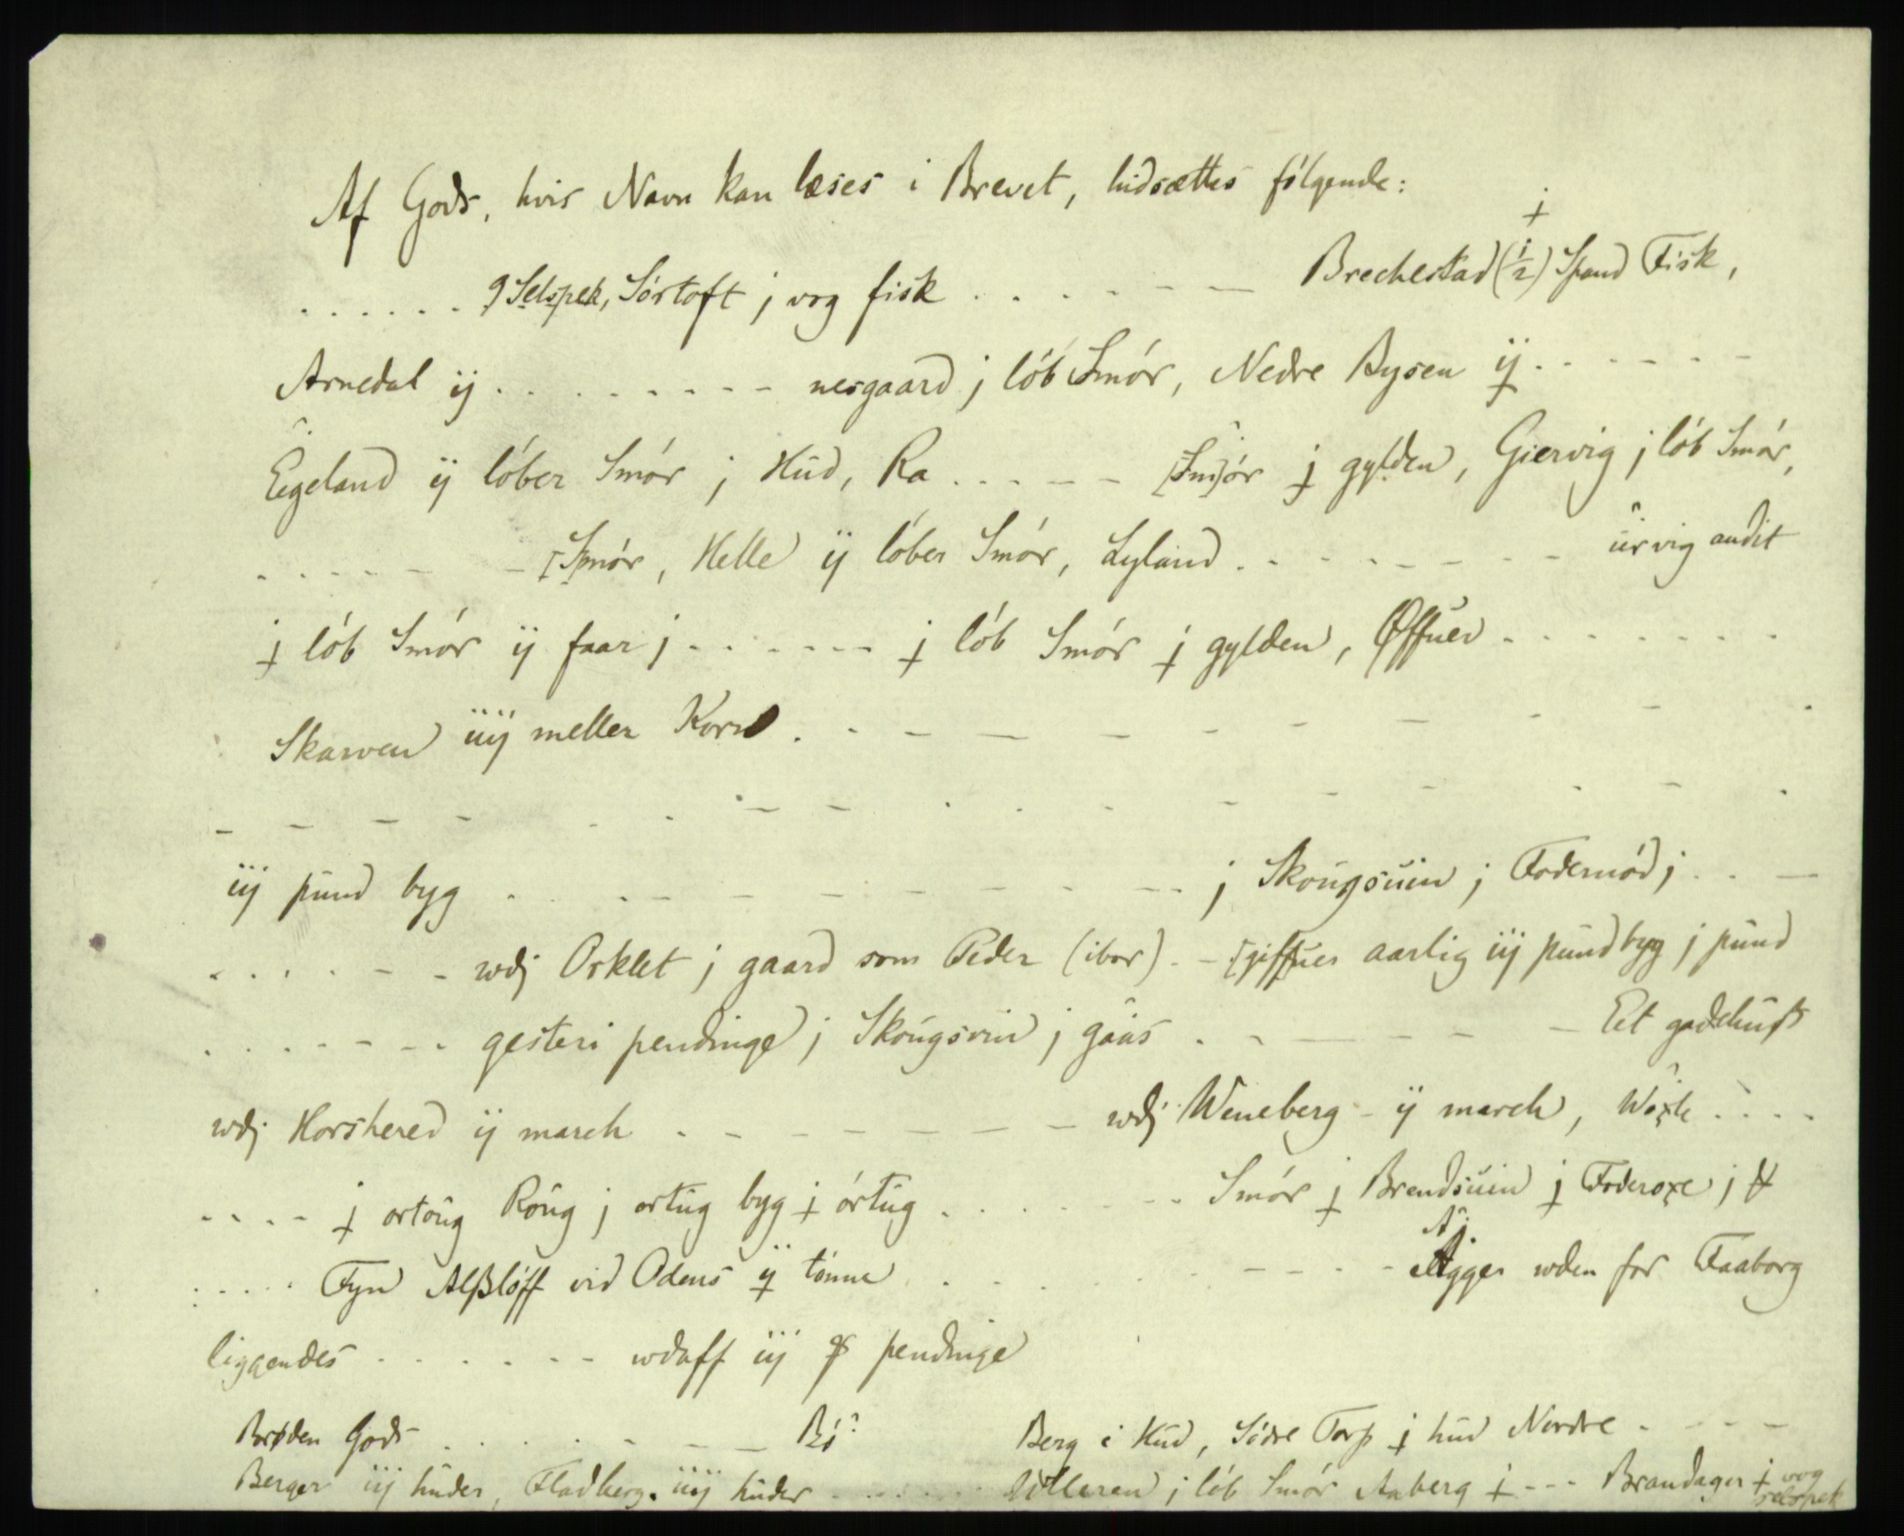 Af Gods, hvis Navn kan læses i Brevet, hidsættes følgende:
. . . . . . 9 Selspek, Sörtoft j vog fisk . . . . - - — Brechestad (½) Spand Fisk,
Arnedal ij . . . . - - - - nesgaard j löb Smör, Nedre Bysen ij . . - - - -
Egeland ij löber Smör j Hud, Ra . . - - - [Sm]ör j gylden, Giervig j löb Smör,
. - - - - - [S]mör, Helle ij löber Smör, Lyland . - - - - - - - urvig andit
j löb Smör ij faar j - . . - - - j löb Smör j gylden, Øffuer - . . - - - -
Skarven iiij meller Korn . - - — - - - — - - .
- - - - . . - - - . . . - - - . - .
iij pund byg . . - - - - - - - - j Skougsuin j Fodernöd j . . —
. . . . - - - wdj Orklet j gaard som Peder (ibor) . - [giffuer aarlig iij pund byg j pund
. . . . - - - . gesteri pendinge j Skougsvin j gaas . - — - - — Eet gadehuss
wdj Horshered ij march . - - - - - — - wdj Weneberg - ij march, Woxle . . . .
. - - - j ortoug Roug j ortug byg j örtug . . . . - - - . Smör j Brendsuin j Foderoxe j
. . . . . Fyn Alszlöff vid Odens ij tönne . - . . . - - - - Aj: Agger wden for Faaborg
liggendes - . . - - - wdaff iij pendinge
Brøden Gods . . . . - - - — Bö? Berg i Hud, Södre Torp j hud Nordre . - - -
Berger iij huder, Fladberg. iiij huder . . . . . Ulleren j löb Smör Aaberg j - - - Brandager j vog selspek